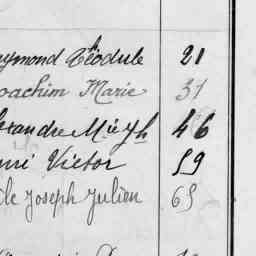 aymond Téodule 21
oachim Marie 37
exandre 46
nri Victor 59
le Joseph Julien 65